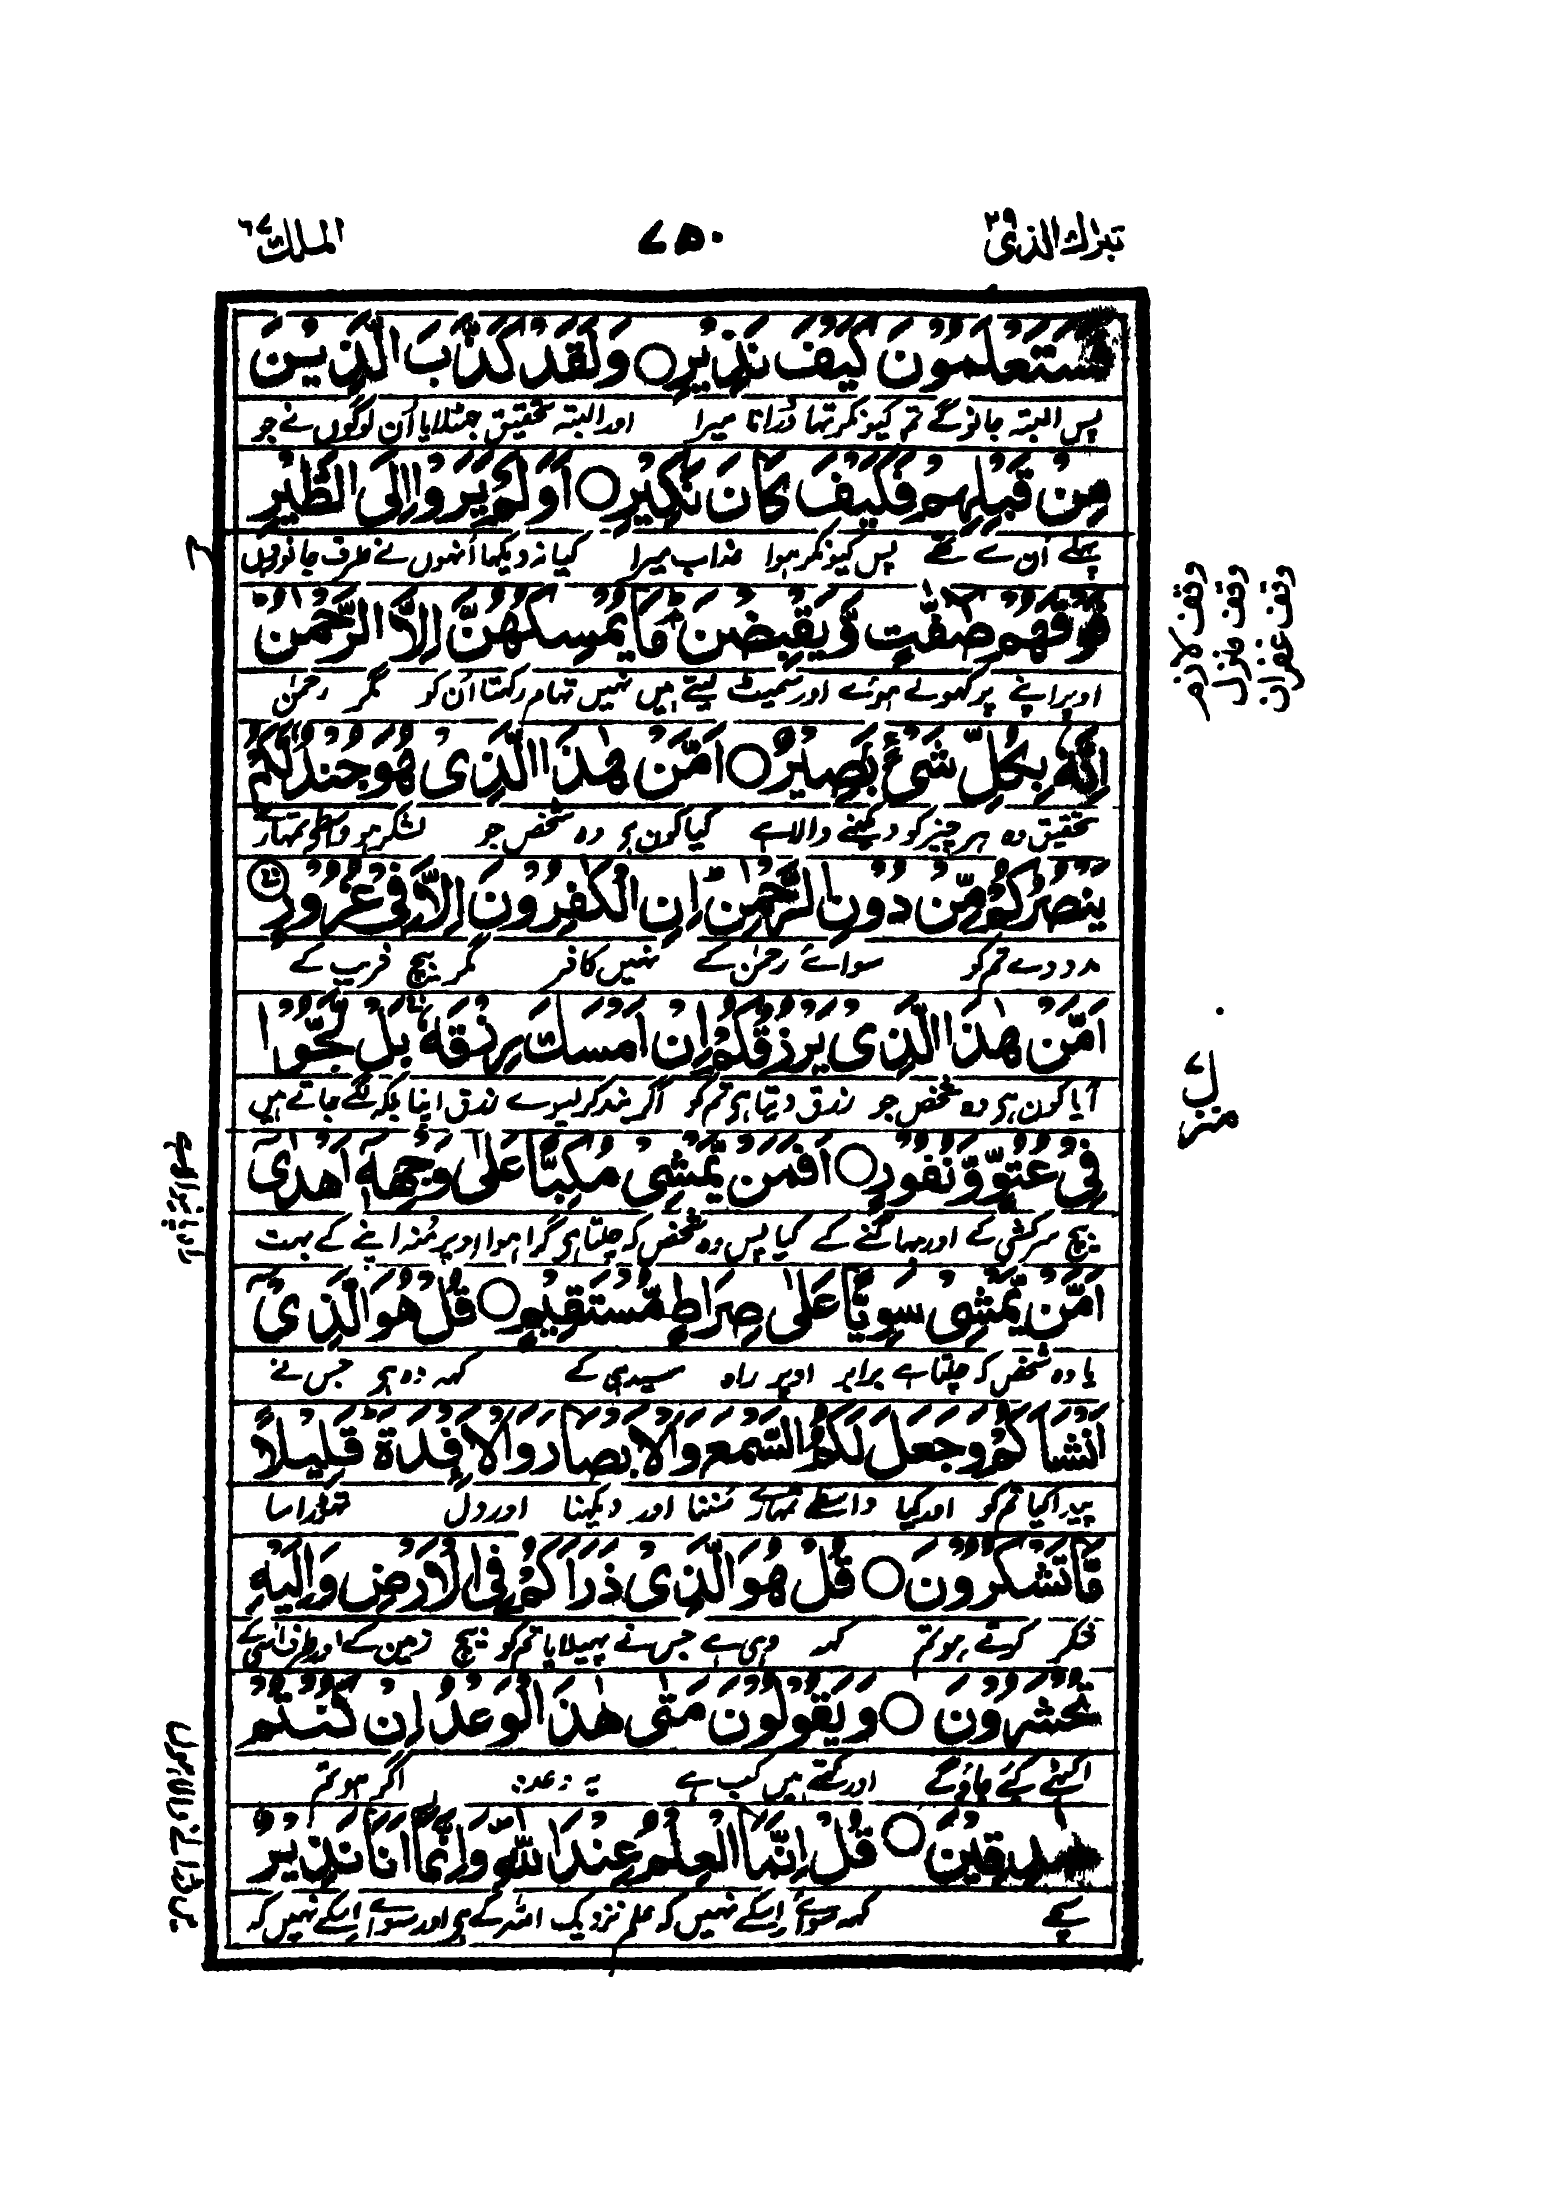 تبٰرك الذى ٢٩
٧٥٠
الملك ٦٧
فَسَتَعْلَمُوْنَ كَيْفَ نَذِيْرِ ○ وَلَقَدْ كَذَّبَ الَّذِيْنَ
پس البتہ جانوگے تم کیونکر تھا ڈرانا میرا اور البتہ تحقیق جھٹلایا اُن لوگوں نے جو
مِنْ قَبْلِهِمْ فَكَيْفَ كَانَ نَكِيْرِ ○ اَوَلَمْ يَرَوْا اِلَى الطَّيْرِ
پہلے اُن سے تھے پس کیونکر ہوا عذاب میرا کیا نہ دیکھا اُنہوں نے طرف جانوروں
فَوْقَهُمْ صٰٓفّٰتٍ وَّيَقْبِضْنَ ؕ مَا يُمْسِكُهُنَّ اِلَّا الرَّحْمٰنُ
اوپر اپنے پر کھولے ہوئے اور سمیٹ لیتے ہیں نہیں تھام رکھتا اُن کو مگر رحمٰن
اِنَّهٗ بِكُلِّ شَىْءٍۭ بَصِيْرٌ ○ اَمَّنْ هٰذَا الَّذِىْ هُوَ جُنْدٌ لَّكُمْ
تحقیق وہ ہر چیز کو دیکھنے والا ہے کیا کون ہی وہ شخص جو لشکر ہو واسطے تمہارے
يَنْصُرُكُمْ مِّنْ دُوْنِ الرَّحْمٰنِ ؕ اِنِ الْكٰفِرُوْنَ اِلَّا فِىْ غُرُوْرٍ
مدد دے تم کو سوائے رحمٰن کے نہیں کافر مگر بیچ فریب کے
اَمَّنْ هٰذَا الَّذِىْ يَرْزُقُكُمْ اِنْ اَمْسَكَ رِزْقَهٗ ۚ بَلْ لَّجُّوْا
آیا کون ہی وہ شخص جو رزق دیتا ہی تم کو اگر بند کر لیوے رزق اپنا بلکہ لگے جاتے ہیں
فِىْ عُتُوٍّ وَّنُفُوْرٍ ○ اَفَمَنْ يَّمْشِىْ مُكِبًّا عَلٰى وَجْهِهٖٓ اَهْدٰٓى
بیچ سرکشی کے اور بھاگنے کے کیا پس وہ شخص کہ چلتا ہی گرا ہوا اوپر مُنہ اپنے کے بہت
اَمَّنْ يَّمْشِىْ سَوِيًّا عَلٰى صِرَاطٍ مُّسْتَقِيْمٍ ○ قُلْ هُوَ الَّذِىْٓ
یا وہ شخص کہ چلتا ہے برابر اوپر راہ سیدھی کے کہہ وہ ہی جس نے
اَنْشَاَكُمْ وَجَعَلَ لَكُمُ السَّمْعَ وَالْاَبْصَارَ وَالْاَفْـِٕدَةَ ؕ قَلِيْلًا
پیدا کیا تم کو اور کیا واسطے تمہارے سُننا اور دیکھنا اور دل تھوڑا سا
مَّا تَشْكُرُوْنَ ○ قُلْ هُوَ الَّذِىْ ذَرَاَكُمْ فِى الْاَرْضِ وَاِلَيْهِ
شکر کرتے ہو تم کہہ وہی ہے جس نے پھیلایا تم کو بیچ زمین کے اور طرف اُسی کے
تُحْشَرُوْنَ ○ وَيَقُوْلُوْنَ مَتٰى هٰذَا الْوَعْدُ اِنْ كُنْتُمْ
اکٹھے کئے جاؤگے اور کہتے ہیں کب ہے یہ وعدہ اگر ہو تم
صٰدِقِيْنَ ○ قُلْ اِنَّمَا الْعِلْمُ عِنْدَ اللّٰهِ ۪ وَاِنَّمَآ اَنَا نَذِيْرٌ
سچے کہہ سوائے اِسکے نہیں کہ علم نزدیک اللہ کے ہی اور سوائے اِسکے نہیں کہ
وقف لازم
وقف منزل
وقف غفران
منزل ٧